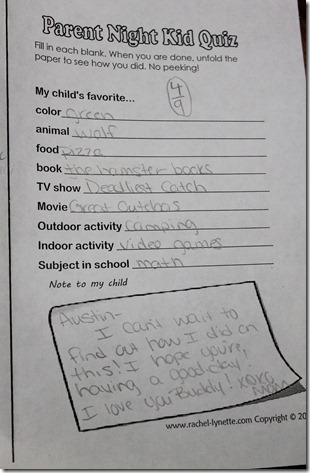 Parent Night Kid Quiz
Fill in each blank. When you are done, unfold the
paper to see how you did. No peeking!
My child's favorite... 4/9
color green
animal wolf
food pizza
book the hamster books
TV show Deadliest Catch
Movie Great Outdoors
Outdoor activity Camping
Indoor activity video games
Subject in school math
Note to my child
Austin-
I can't wait to
find out how I did on
this! I hope you're
having a good day.
I love you Buddy! XOXO
MOM
www.rachel-lynette.com Copyright © 20